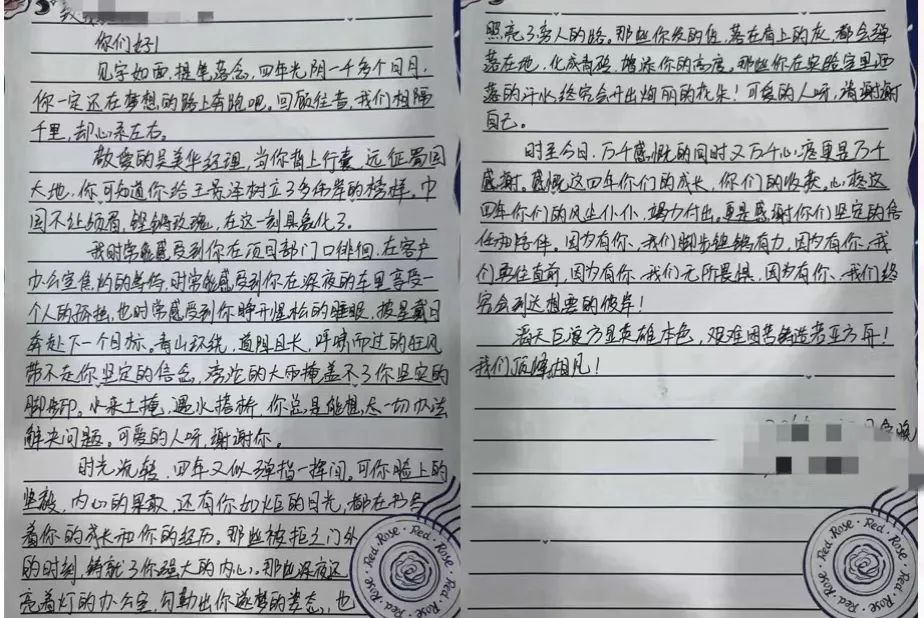 你们好!
见字如面,提笔落念,四年光阴一千多个日月,
你一定还在梦想的路上奔跑吧。回顾往昔,我们相隔
千里,却心系左右。
敬爱的吴美华经理,当你背上行囊,远征蜀国
大地,你可知道你给王景泽树立了多伟岸的榜样。巾
帼不让须眉,铿锵玫瑰,在这一刻具象化了。
我时常能感受到你在项目部门口徘徊,在客户
办公室焦灼的等待,时常能感受到你在深夜的车里享受一
个人的孤独,也时常感受到你睁开惺松的睡眼,披星戴月
奔赴下一个目标。青山环绕,道阻且长,呼啸而过的狂风
带不走你坚定的信念,滂沱的大雨掩盖不了你坚定的
脚印。水来土掩,遇水搭桥,你总是能想尽一切办法
解决问题。可爱的人呀,谢谢你。
时光流转,四年又似弹指一挥间。可你脸上的
坚毅,内心的果敢,还有你如炬的目光,都在书写
着你的成长和你的经历。那些被拒之门外
的时刻,铸就了你强大的内心。那些深夜还
亮着灯的办公室,勾勒出你逐梦的姿态,也
照亮了旁人的路。那些你受的佳,落在肩上的灰,都会弹
落在地,化成青砖,增添你的高度。那些你在实验室里洒
落的汗水终究会开出绚丽的花朵!可爱的人呀,请谢谢
自己。
时至今日,万千感慨的同时又万千心疼更是万千
感谢。感慨这四年你们的成长,你们的收获。心疼这
四年你们的风尘仆仆,竭力付出。更是感谢你们坚定的信
任和陪伴。因为有你、我们脚步铿锵有力,因为有你、我
们勇往直前,因为有你、我们无所畏惧,因为有你、我们终
究会到达想要的彼岸!
滔天巨浪方显英雄本色,艰难困苦铸造若亚方舟!
我们顶峰相见!
Red Rose · Red Rose · Red Rose
Red Rose · Red Rose · Red Rose